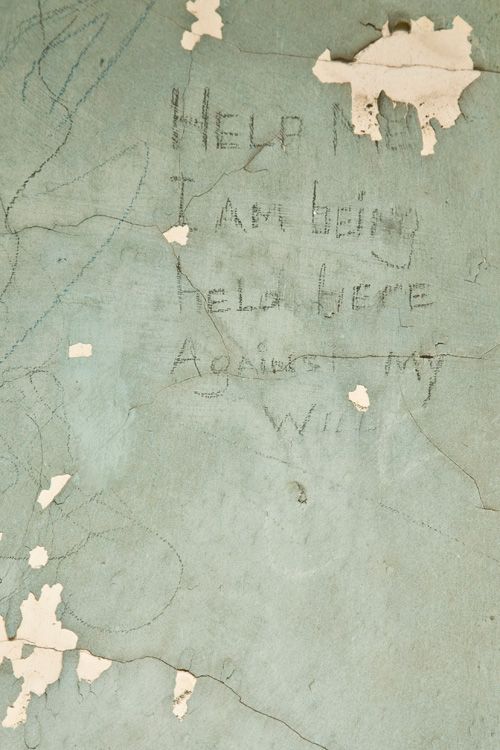 HELP ME
I AM being
Held here
Against My
Will